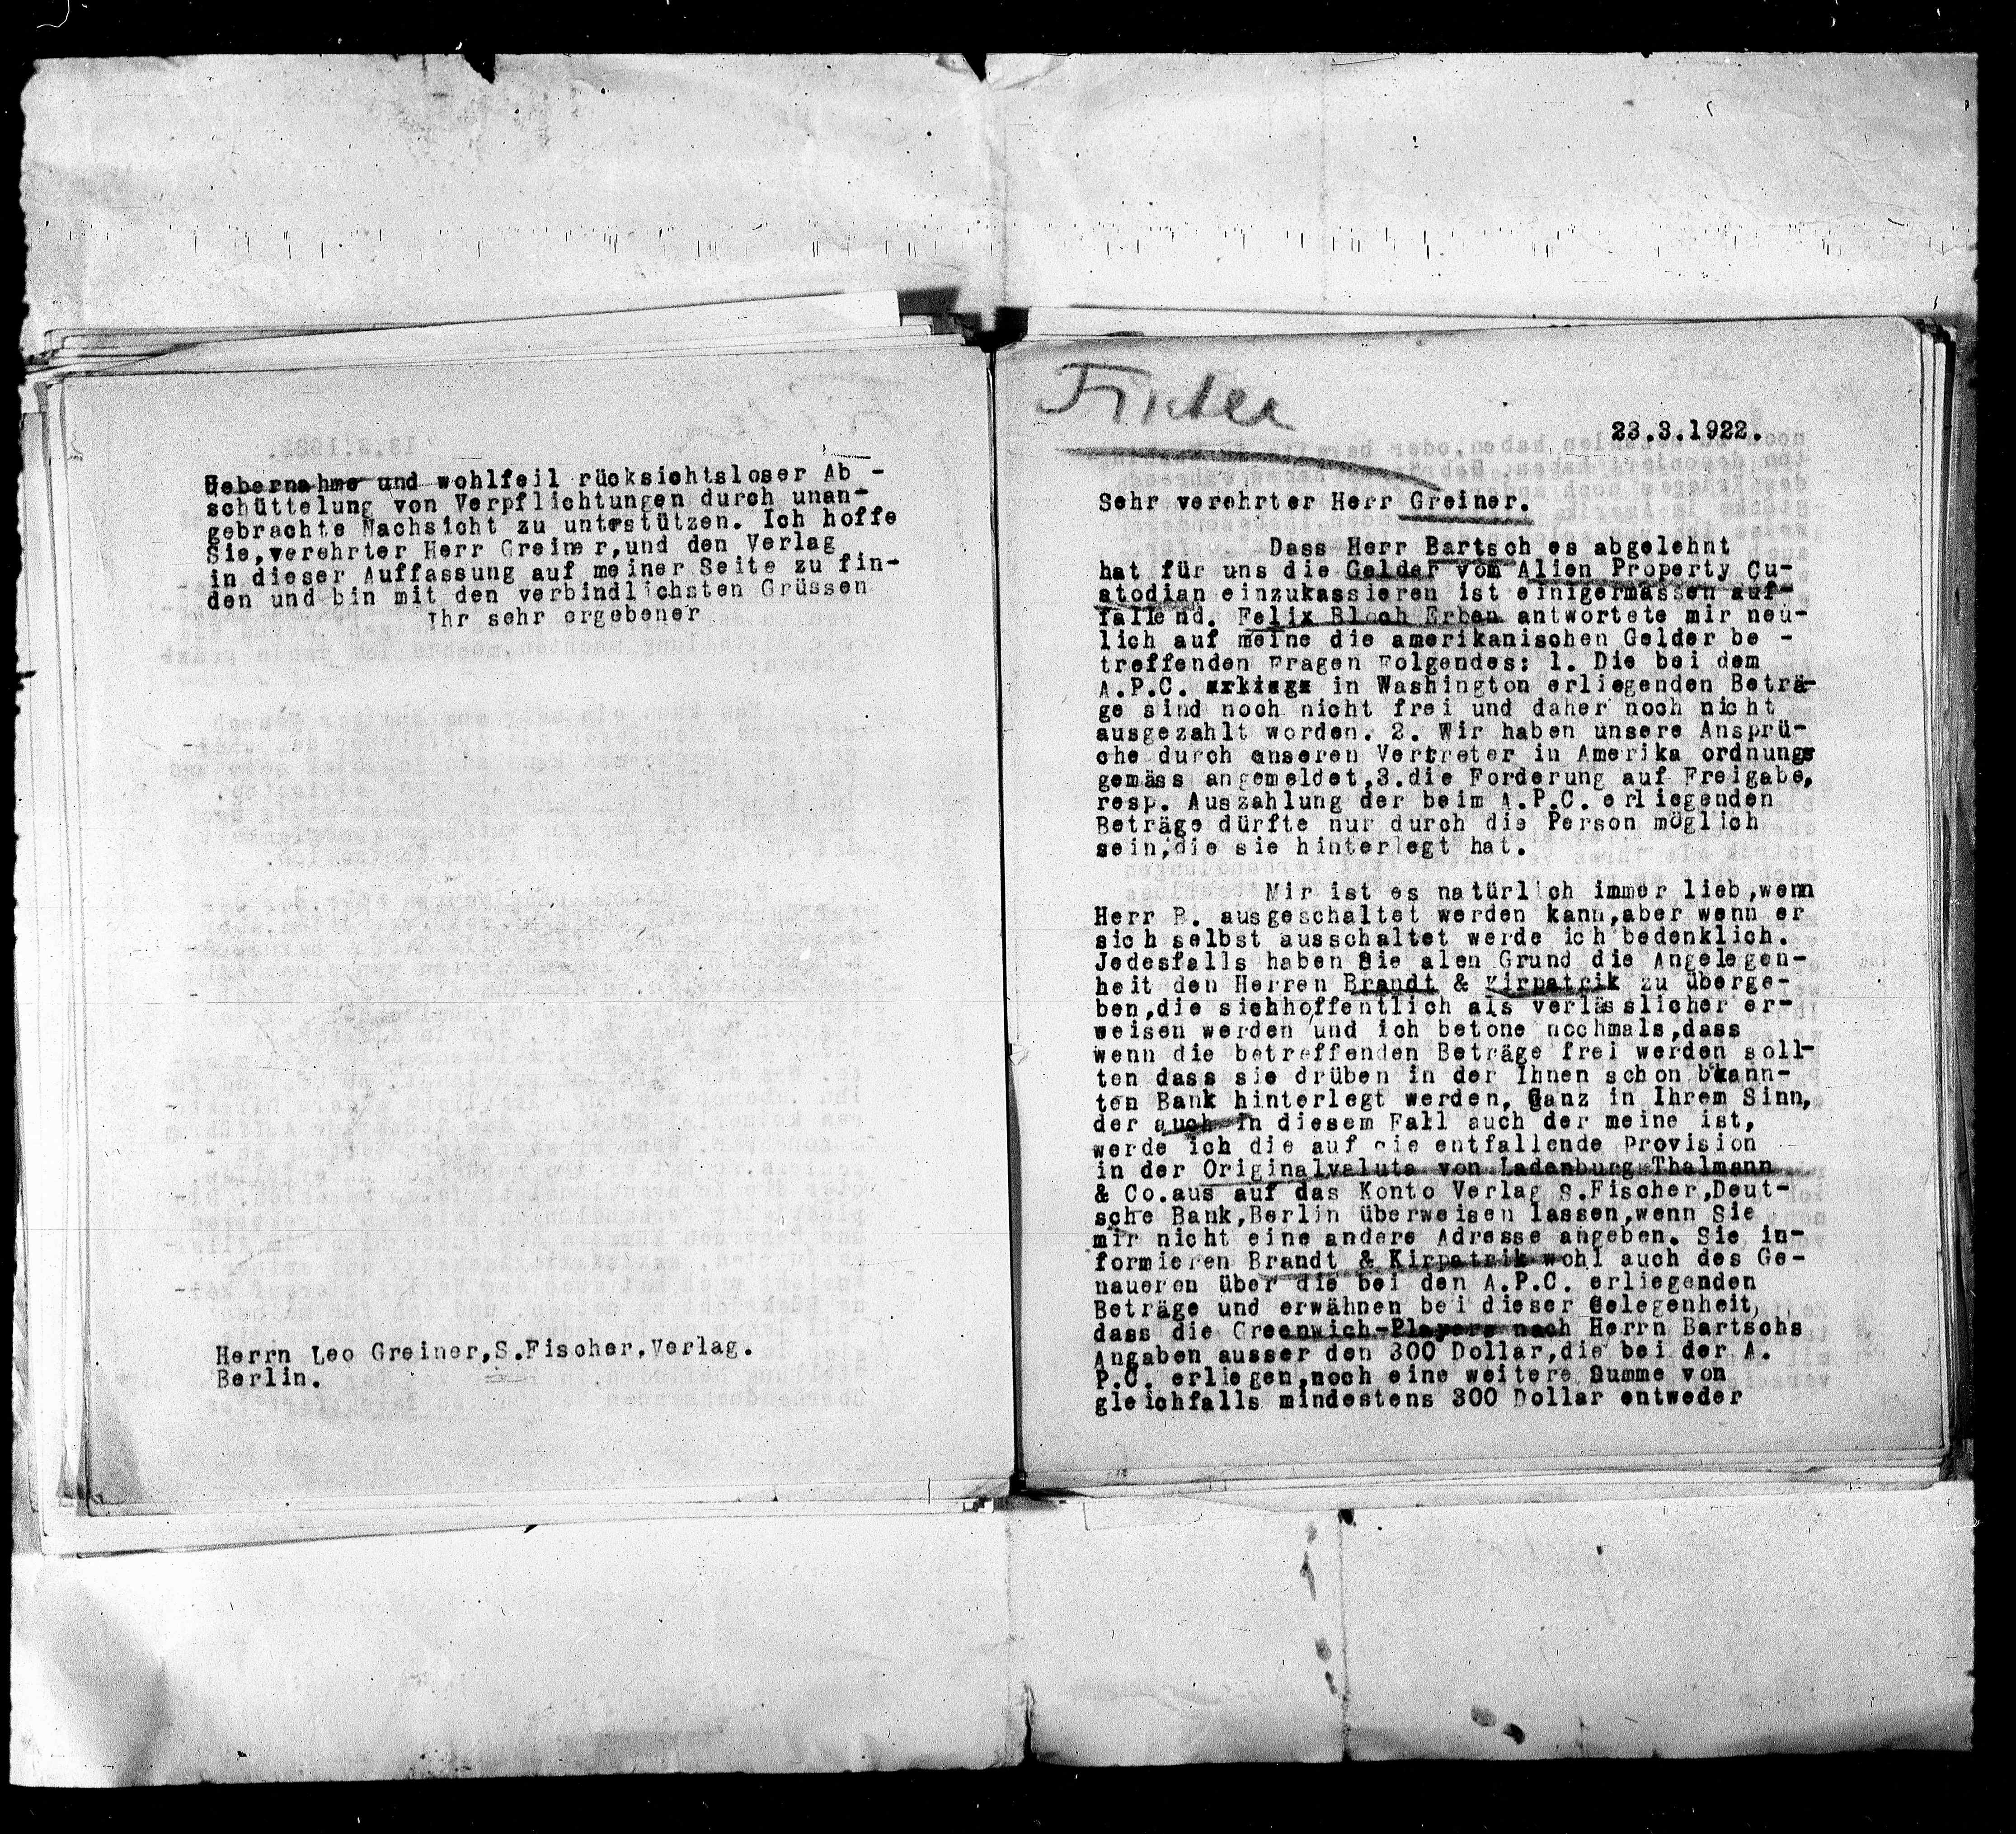 Uebernahme und wohlfeil rücksichtsloser Ab -
schüttelung von Verpflichtungen durch unan-
gebrachte Nachsicht zu unterstützen. Ich hoffe
Sie,verehrter Herr Greiner,und den Verlag
in dieser Auffassung auf meiner Seite zu fin-
den und bin mit den verbindlichsten Grüssen
Ihr sehr ergebener
Herrn Leo Greiner,S.Fischer,Verlag.
Berlin.
Fischer
23.3.1922.
Sehr verehrter Herr Greiner.
Dass Herr Bartsch es abgelehnt
hat für uns die Gelder vom Alien Property Cu-
stodian einzukassieren ist einigermassen auf-
fallend. Felix Bloch Erben antwortete mir neu-
lich auf meine die amerikanischen Gelder be -
treffenden Fragen Folgendes: 1. Die bei dem
A.P.C. in Washington erliegenden Beträ-
ge sind noch nicht frei und daher noch nicht
ausgezahlt worden. 2. Wir haben unsere Ansprü-
che durch unseren Vertreter in Amerika ordnungs
gemäss angemeldet,3.die Forderung auf Freigabe,
resp. Auszahlung der beim A.P.C. erliegenden
Beträge dürfte nur durch die Person möglich
sein,die sie hinterlegt hat.
Mir ist es natürlich immer lieb,wenn
Herr B. ausgeschaltet werden kann,aber wenn er
sich selbst ausschaltet werde ich bedenklich.
Jedesfalls haben Sie alen Grund die Angelegen-
heit den Herren Brandt & Kirpatrik zu überge-
ben,die siehhoffentlich als verlässlicher er-
weisen werden und ich betone nochmals,dass
wenn die betreffenden Beträge frei werden soll-
ten dass sie drüben in der Ihnen schon bkann-
ten Bank hinterlegt werden, Ganz in Ihrem Sinn,
der auch in diesem Fall auch der meine ist,
werde ich die auf Sie entfallende Provision
in der Originalvaluta von Ladenburg Thalmann
& Co.aus auf das Konto Verlag S.Fischer,Deut-
sche Bank,Berlin überweisen lassen,wenn Sie
mir nicht eine andere Adresse angeben. Sie in-
formieren Brandt & Kirpatrik wohl auch des Ge-
naueren über die bei den A.P.C. erliegenden
Beträge und erwähnen bei dieser Gelegenheit,
dass die Greenwich-Players nach Herrn Bartschs
Angaben ausser den 300 Dollar,die bei der A.
P.C. erliegen,noch eine weitere Summe von
gleichfalls mindestens 300 Dollar entweder